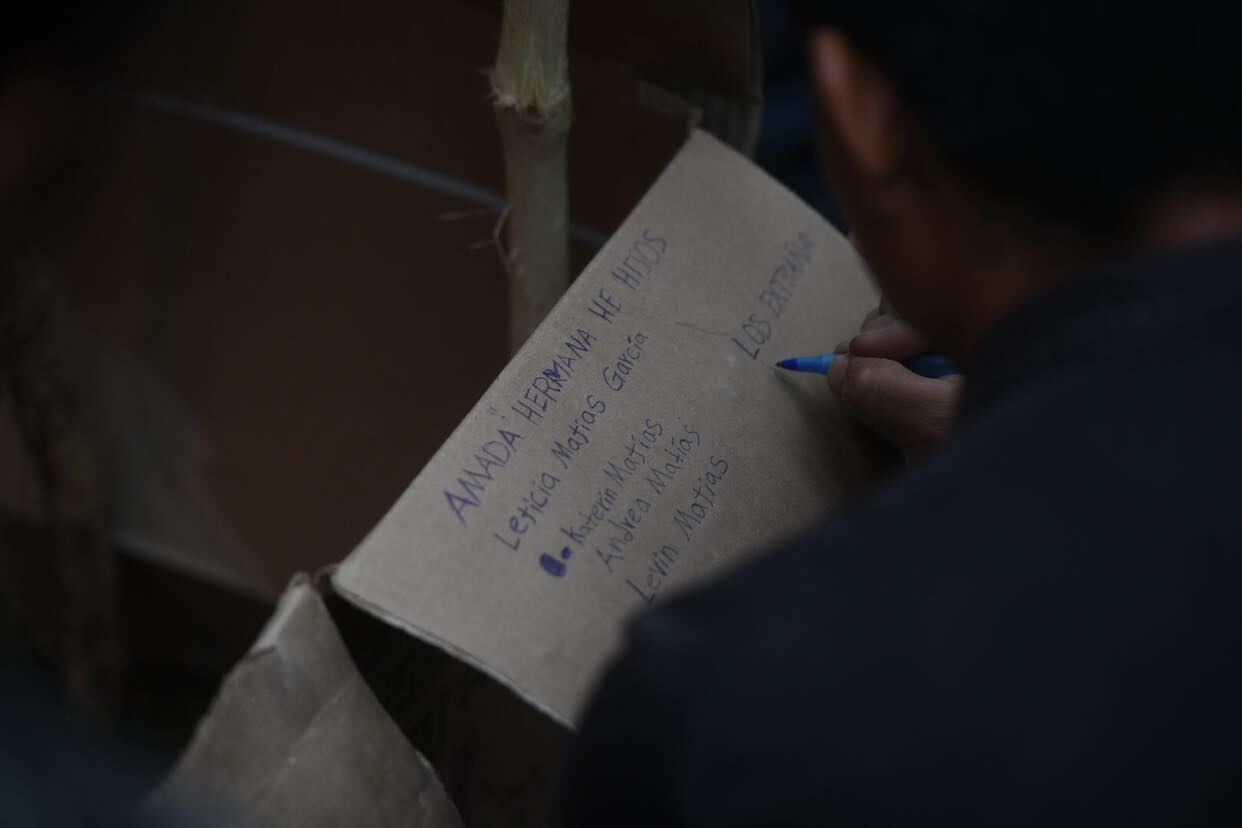 AMADA" HERMANA HE HIJOS
Leticia Matías García
Katerin Matías
Andrea Matías
Levin Matias
LOS EXTRAÑA